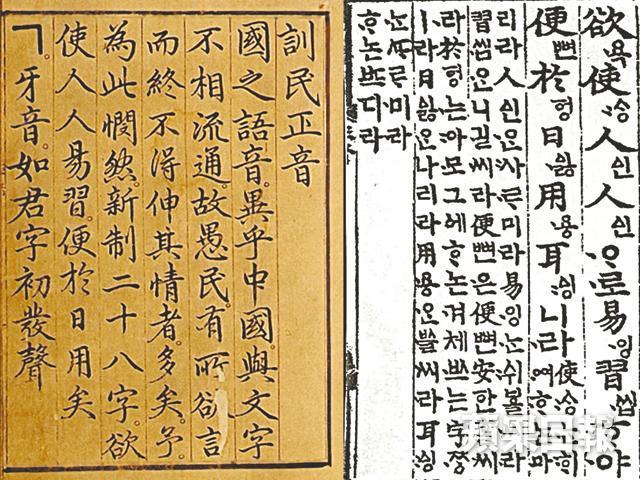 訓民正音
國之語音。異乎中國。與文字
不相流通。故愚民。有所欲言
而終不得伸其情者。多矣。予。
為此憫然。新制二十八字。欲
使人人易習。便於日用矣
ㄱ。牙音。如君字初發聲
欲욕使ᄉᆞᆼ人ᅀᅵᆫ人ᅀᅵᆫᄋᆞ로易잉習씹ᄒᆞ야
便뼌於ᅙᅥᆼ日ᅀᅵᇙ用용耳ᅀᅵᆼ니라
使ᄉᆞᆼ
리라人ᅀᅵᆫᄋᆞᆫ사ᄅᆞ미라易잉ᄂᆞᆫ쉬ᄫᅳᆯ씨라
習씹은니길씨라便뼌은便뼌安한ᄒᆞᆯ씨
라於ᅙᅥᆼ는아모그에ᄒᆞ논겨체ᄡᅳ는字ᄍᆞᆼ
ㅣ라日ᅀᅵᇙᄋᆞᆫ나리라用용ᄋᆞᆫᄡᅳᆯ씨라耳ᅀᅵᆼ
ᄂᆞᆫᄯᆞᄅᆞ미라
ᄒᆞ논ᄠᅳ디라
蘋果日報